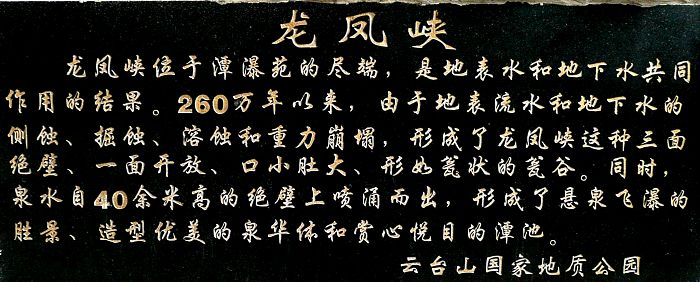 龙凤峡
龙凤峡位于潭瀑苑的尽端，是地表水和地下水共同
作用的结果。260万年以来，由于地表流水和地下水的
侧蚀、掘蚀、溶蚀和重力崩塌，形成了龙凤峡这种三面
绝壁、一面开放、口小肚大、形如瓮状的瓮谷。同时，
泉水自40余米高的绝壁上喷涌而出，形成了悬泉飞瀑的
胜景、造型优美的泉华体和赏心悦目的潭池。
云台山国家地质公园